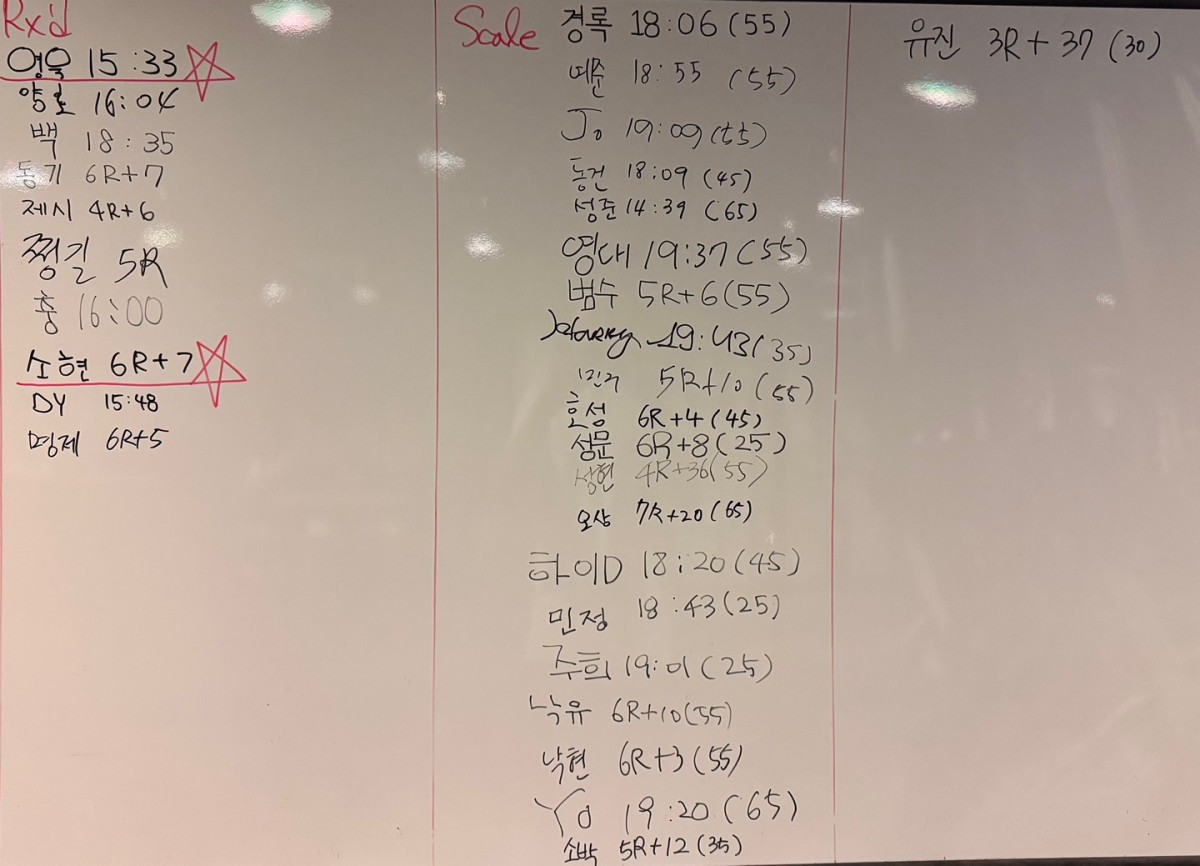 Rx'd
영욱 15:33
양호 16:04
백 18:35
동기 6R+7
제시 4R+6
쩡길 5R
충 16:00
소현 6R+7
DY 15:48
명제 6R+5
Scale 경록 18:06 (55)
예준 18:55 (55)
Jo 19:09 (55)
동건 18:09 (45)
성준 14:39 (65)
영대 19:37 (55)
범수 5R+6 (55)
19:43 (35)
5R+10 (55)
호성 6R+4 (45)
성문 6R+8 (25)
성현 4R+36 (55)
오상 7R+20 (65)
하이D 18:20 (45)
민정 18:43 (25)
주희 19:01 (25)
낙유 6R+10 (55)
낙현 6R+3 (55)
Yo 19:20 (65)
소박 5R+12 (35)
유진 3R+37 (30)